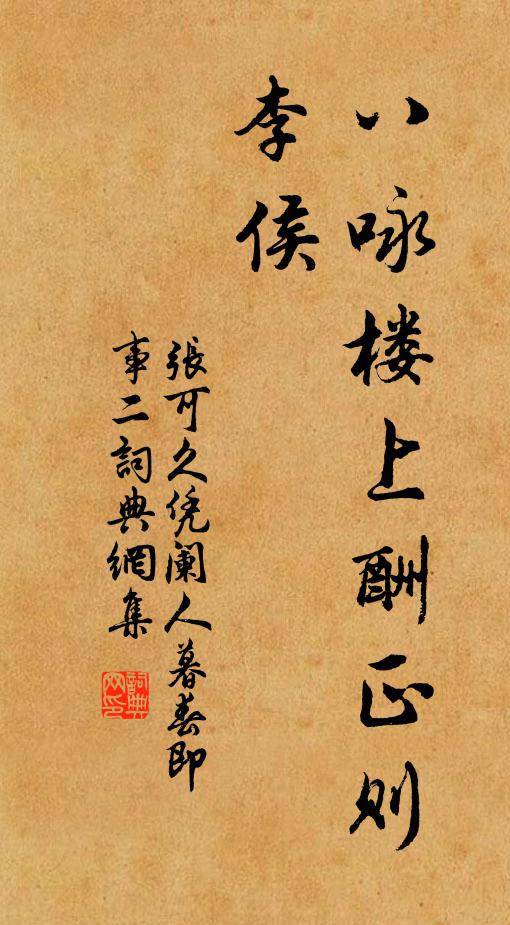 八咏楼上酬正则
李侯
張可久凭阑人暮春即
事二詞典網集
詞典
网印